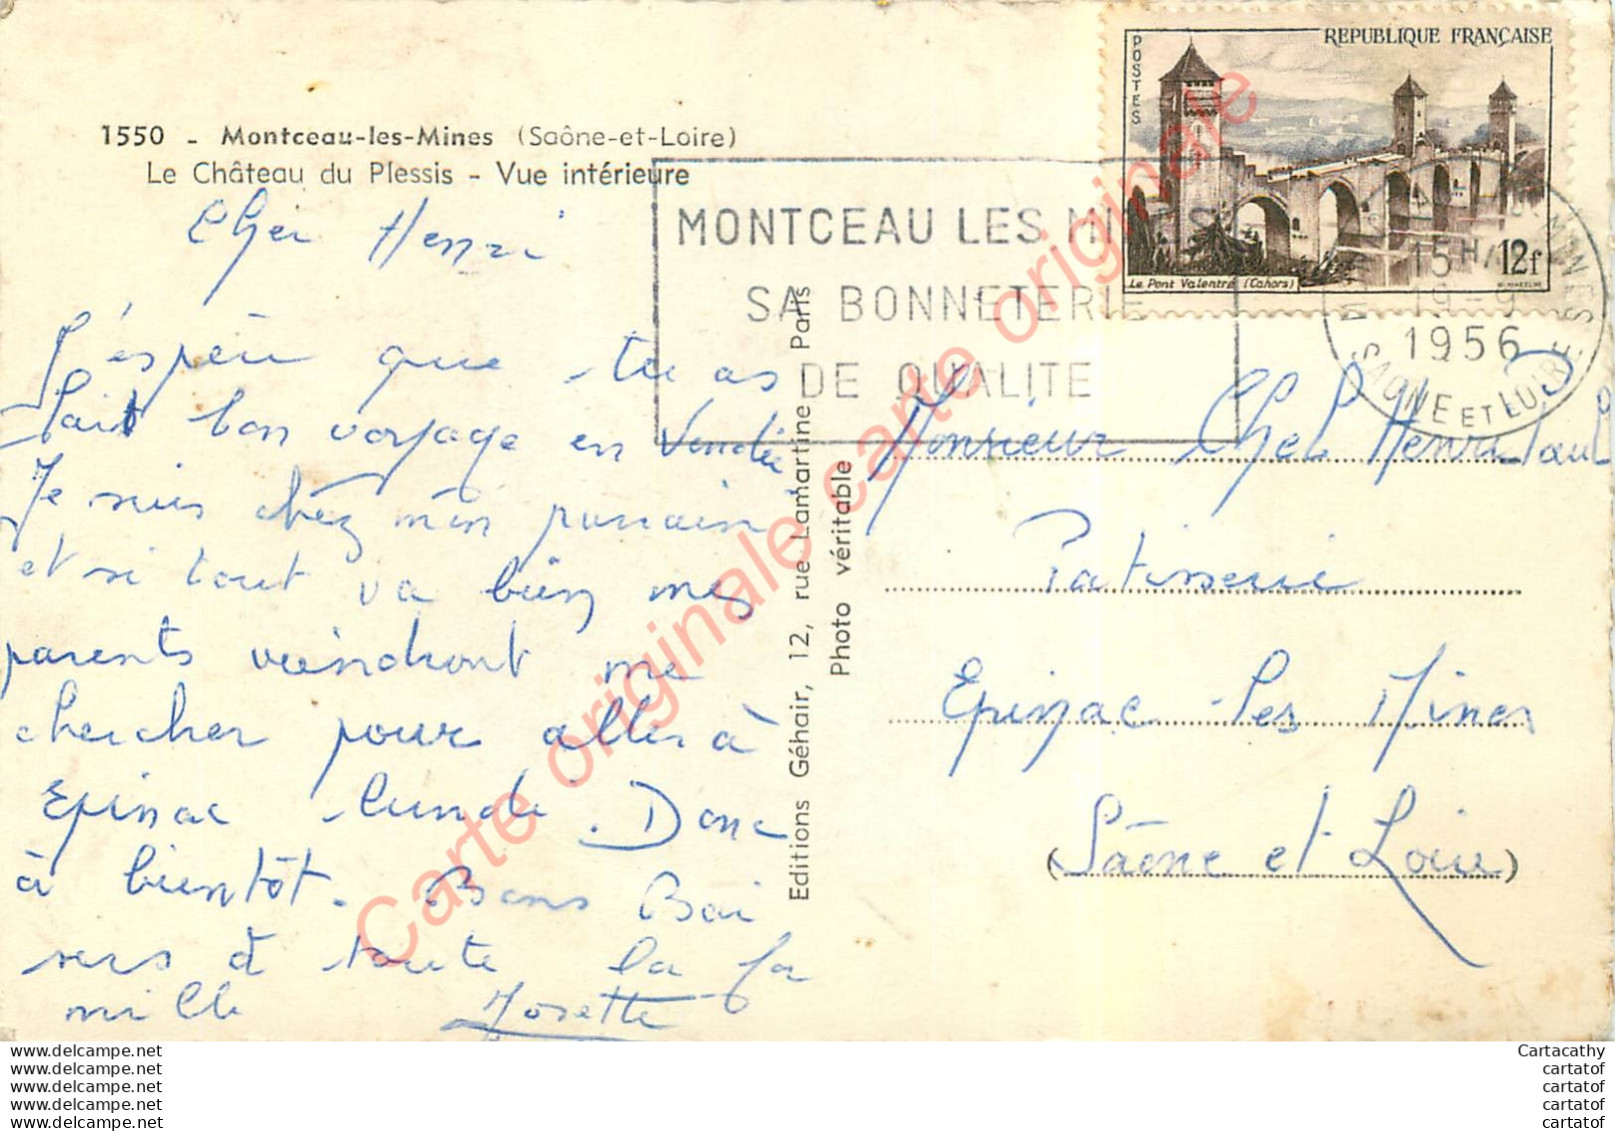 1550 - Montceau-les-Mines (Saône-et-Loire)
Le Château du Plessis - Vue intérieure
Cher Henri
J'espère que tu as
fait bon voyage en Vendée
Je suis chez mon parrain
et si tout va bien mes
parents viendront me
chercher pour aller à
Epinac lundi. Donc
à bientôt. Bons Bai
sers à toute la fa
mille Josette
Editions Géhair, 12, rue Lamartine Paris
Photo véritable
MONTCEAU LES MINES
SA BONNETERIE
DE QUALITE
POSTES
REPUBLIQUE FRANÇAISE
Le Pont Valentré (Cahors)
12f
15H
19-9
1956
SAONE ET LOIRE
Monsieur Henri Paul
Patisserie
Epinac les Mines
(Saône et Loire)
Carte originale carte originale
www.delcampe.net
www.delcampe.net
www.delcampe.net
www.delcampe.net
www.delcampe.net
Cartacathy
cartatof
cartatof
cartatof
cartatof